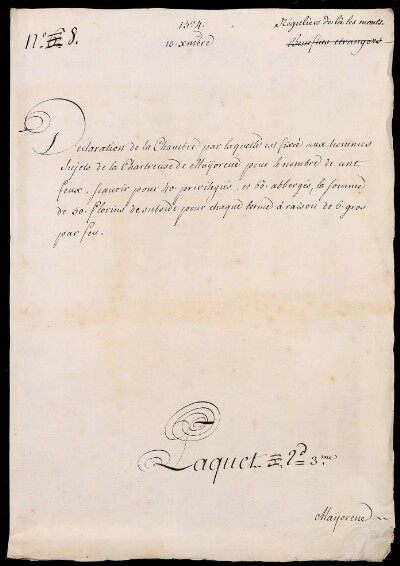 1524.
10. xmbre
Réguliers de là les monts.
Benefices etrangers
N.º 8.
Declaration de la Chambre par laquelle est fixé aux hommes
sujets de la Chartreuse de Mayorene pour le nombre de cent
feux, sçavoir pour 40. privilegiés, et 60. abbergés, la somme
de 50. florins de subside pour chaque terme à raison de 6. gros
par feu.
Paquet 2.d 3.me
Mayorene